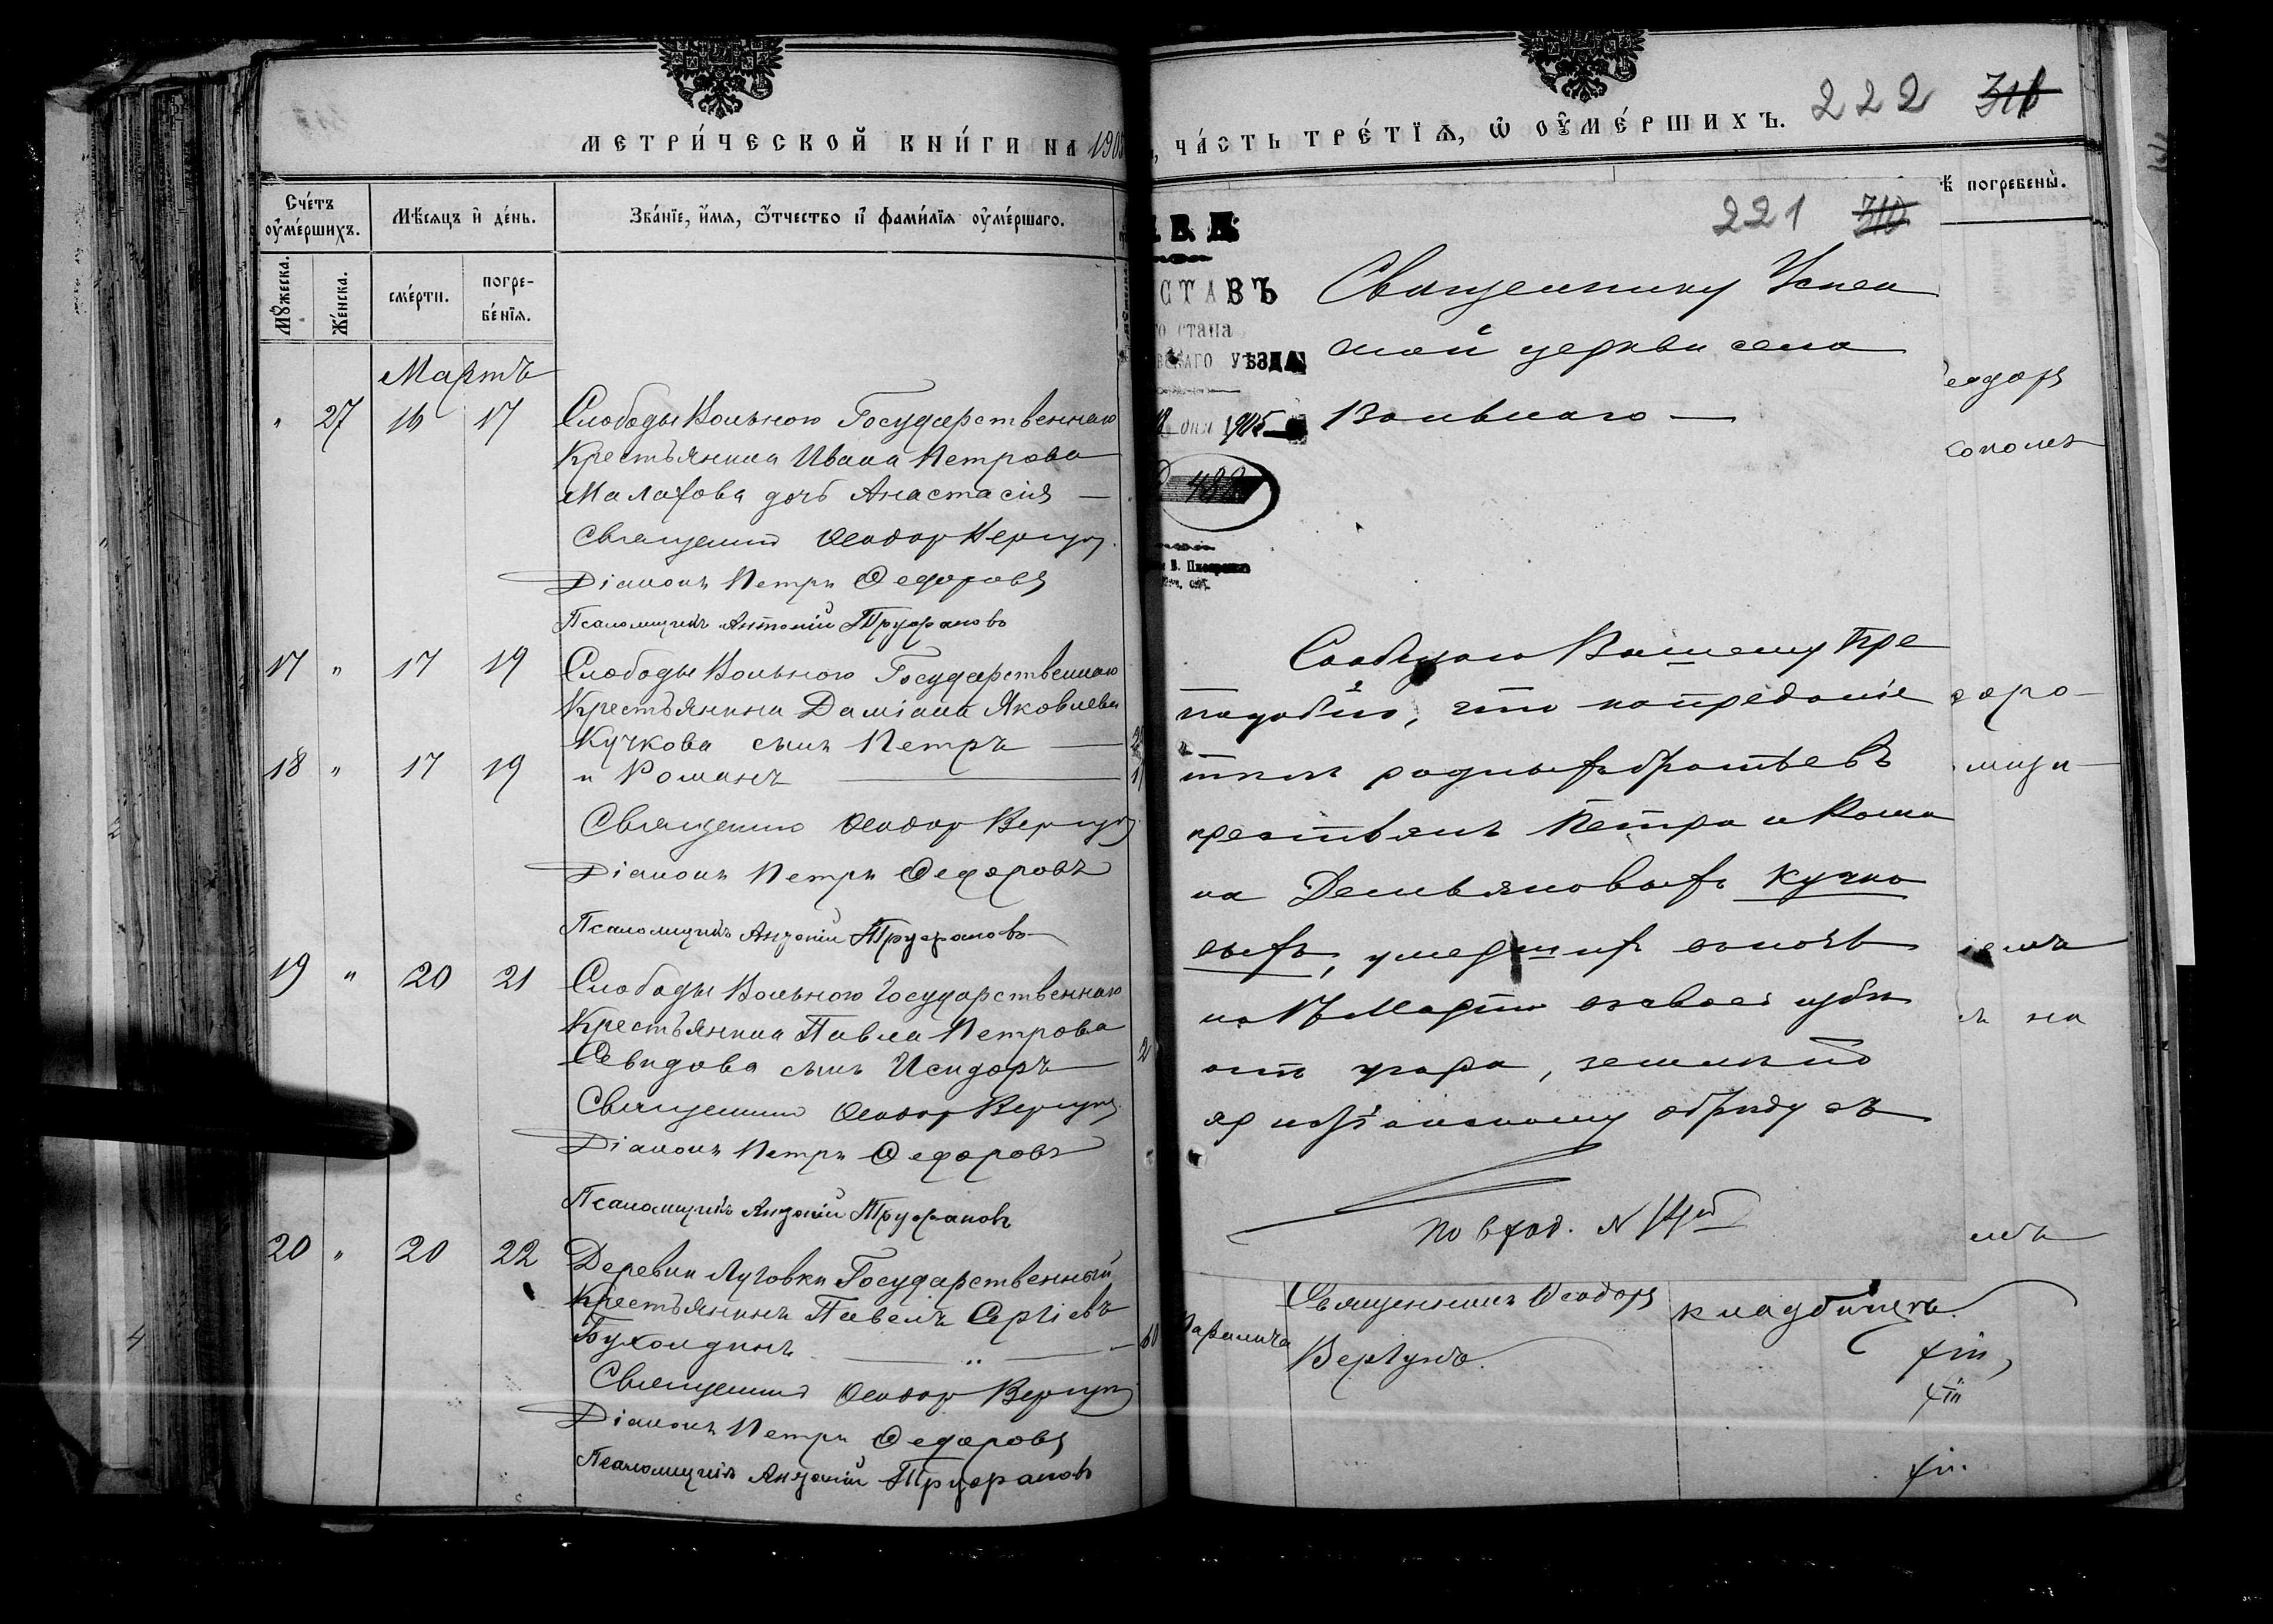 МЕТРИ́ЧЕСКОЙ КНИ́ГИ НА 190
Сче́тъ ᲂу҆ме́ршихъ.
Мѣ́сяцъ и҆ де́нь.
Зва́нїе, и҆́мя, ѻ҆́тчество и҆ фами́лїя ᲂу҆ме́ршаго.
Мꙋ́жеска.
Же́нска.
сме́рти.
погре-
бе́нїя.
Мартъ
" 27 16 17 Слободы Вольного Государственнаго
Крестьянина Ивана Петрова
Малахова дочь Анастасія —
Священникъ Ѳеодоръ Вергунъ
Діаконъ Петръ Федоровъ
Псаломщикъ Антоній Труфановъ
17 " 17 19 Слободы Вольного Государственнаго
Крестьянина Даміана Яковлева
Кучкова сынъ Петръ — 2
18 " 17 19 и Романъ — 1
Священникъ Ѳеодоръ Вергунъ
Діаконъ Петръ Федоровъ
Псаломщикъ Антоній Труфановъ
19 " 20 21 Слободы Вольного Государственнаго
Крестьянина Павла Петрова
сынъ Исидоръ 2
Священникъ Ѳеодоръ Вергунъ
Діаконъ Петръ Федоровъ
Псаломщикъ Антоній Труфановъ
20 " 20 22 Деревни Луговки Государственный
Крестьянинъ Павелъ Сергіевъ
60
Священникъ Ѳеодоръ Вергунъ
Діаконъ Петръ Федоровъ
Псаломщикъ Антоній Труфановъ
ЧА́СТЬ ТРЕ́ТЇѦ, Ѽ ОУ҆МЕ́РШИХЪ. 222
погребены̀.
221 310
СТАВЪ
го стана
СКАГО УѢЗДА
дня 1905
488
Священнику Успен
ской церкви села
Вольнаго —
Сообщаю Вашему Пре
подобію, что къ преданіе
тѣлъ родныхъ братьевъ
крестьянъ Петра и Рома
на Демьяновыхъ Кучко
выхъ, умершихъ въ ночь
на 17 Марта въ своей избѣ
отъ угара, землѣ по
христіанскому обряду съ
По вход. N
Священникъ Ѳеодоръ
Вергунъ.
кладбищѣ